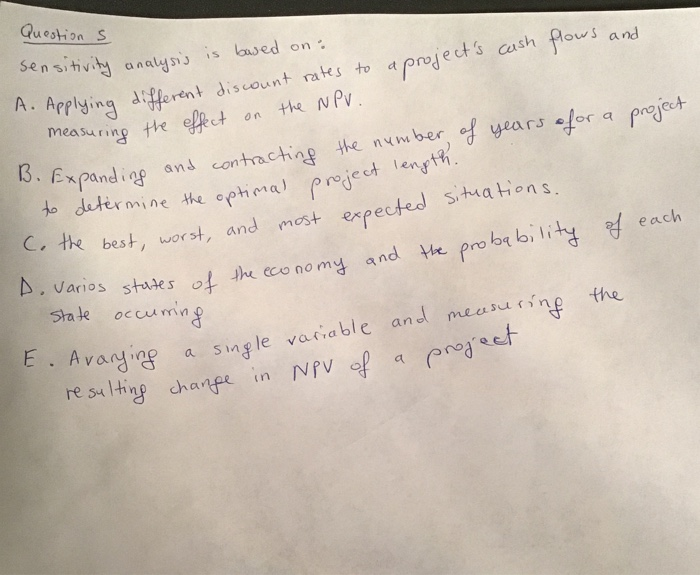 Question 5
sensitivity analysis is based on :
A. Applying different discount rates to a project's cash flows and
measuring the effect on the NPV.
B. Expanding and contracting the number of years for a project
to determine the optimal project length.
C. the best, worst, and most expected situations.
D. Varios states of the economy and the probability of each
state occurring
E. Avarying a single variable and measuring the
resulting change in NPV of a project